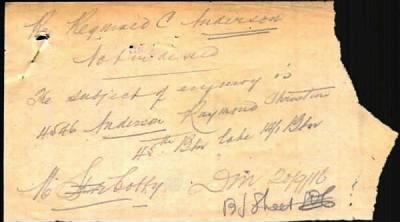 Re Reginald C Anderson
Not indexed
The subject of enquiry is
4546 Anderson Raymond Thurston
45th Btn late 14/1 Bn
20/9/16
B/ Sheet